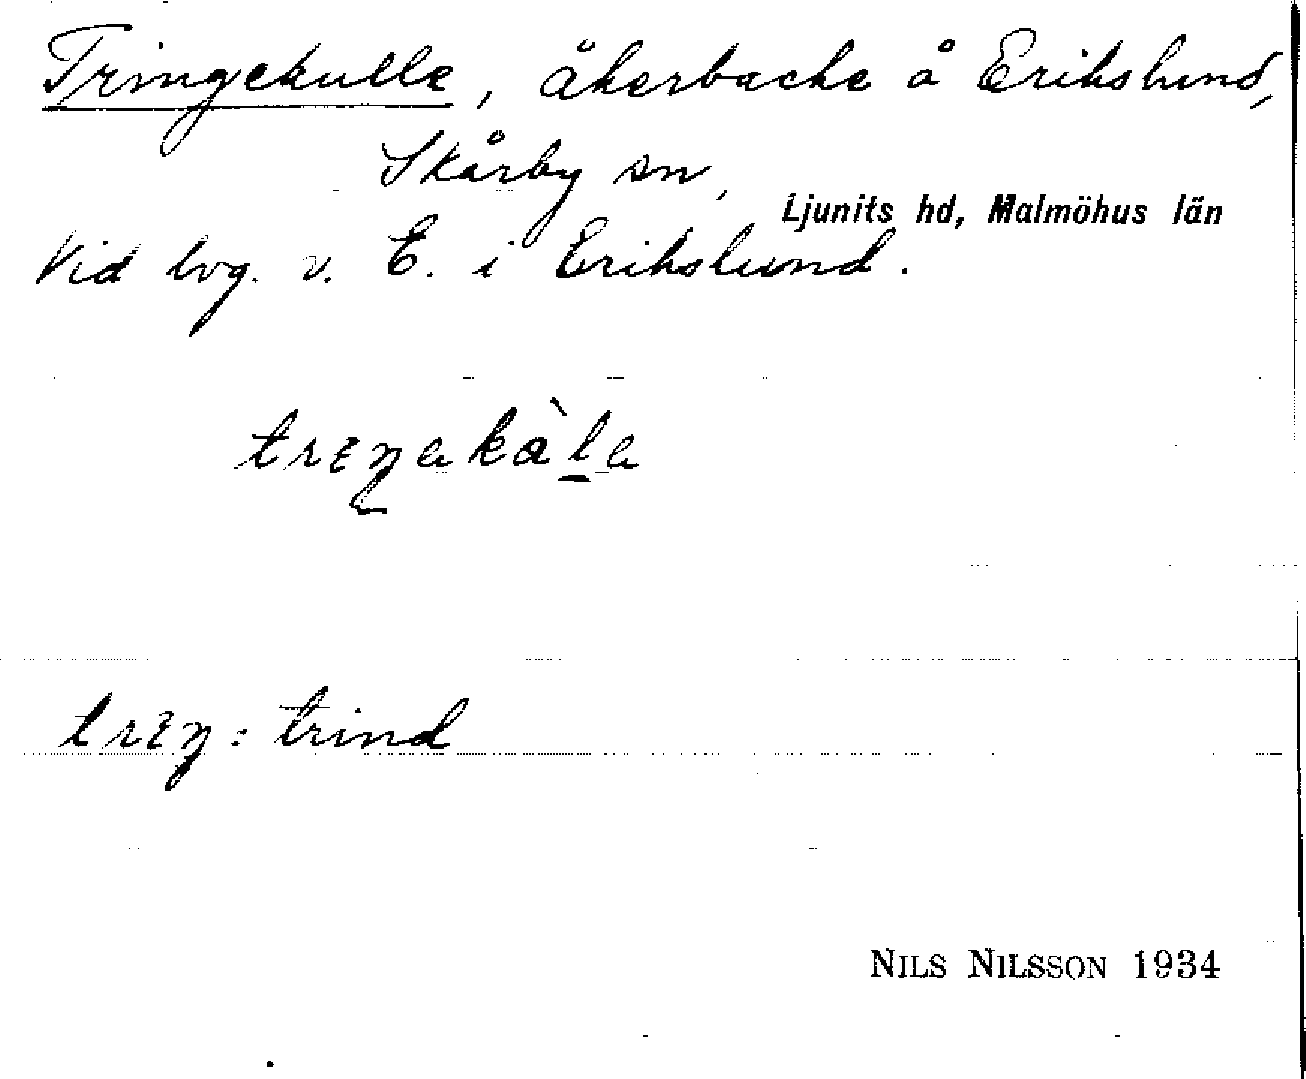 Tringekulle, åkerbacke å Erikslund,
Skårby sn, Ljunits hd, Malmöhus län
Vid bvg. v. E. i Erikslund.
trɪŋakàla
trɪŋ: trind
NILS NILSSON 1934